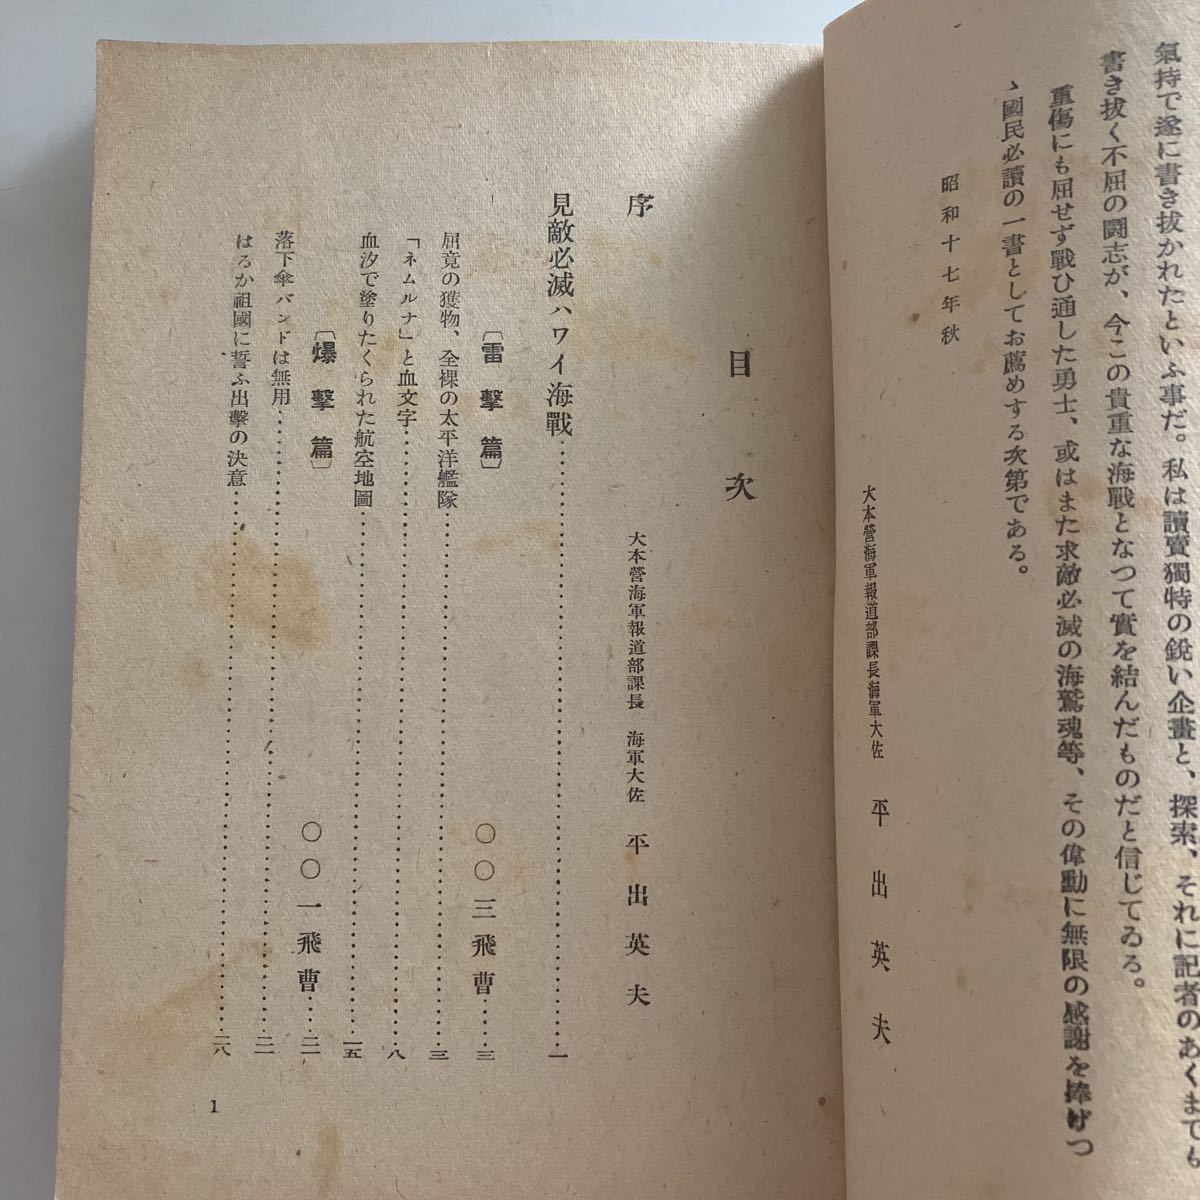 氣持で遂に書き抜かれたといふ事だ。私は讀賣獨特の鋭い企畫と、探索、それに記者のあくまでも
書き抜く不屈の闘志が、今この貴重な海戰となつて實を結んだものだと信じてゐる。
重傷にも屈せず戰ひ通した勇士、或はまた求敵必滅の海鷲魂等、その偉勳に無限の感謝を捧げつ
ゝ國民必讀の一書としてお薦めする次第である。
昭和十七年秋
大本營海軍報道部課長海軍大佐 平出英夫
目次
序 大本營海軍報道部課長 海軍大佐 平出英夫
見敵必滅ハワイ海戰……………一
〔雷擊篇〕 〇〇三飛曹……三
屈竟の獲物、全裸の太平洋艦隊……………三
「ネムルナ」と血文字……………八
血汐で塗りたくられた航空地圖……………一五
〔爆擊篇〕 〇〇一飛曹……二一
落下傘バンドは無用……………二一
はるか祖國に誓ふ出擊の決意……………二八
1